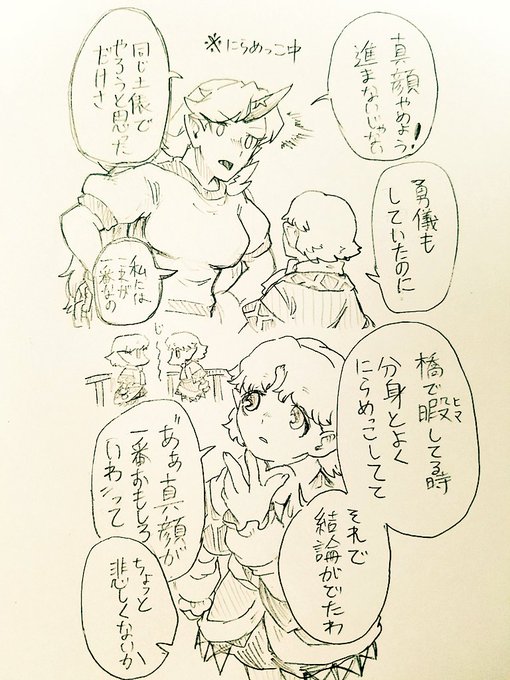 ※にらめっこ中
真顔やめよう!
進まないじゃない
同じ土俵で
やろうと思った
だけさ
勇儀も
していたのに
私には
一番なの
橋で暇してる時
ヒマ
分身とよく
にらめっこしてて
それで
結論がでたわ
あぁ真顔が
一番おもしろ
いわ〟って
ちょっと
悲しくないか